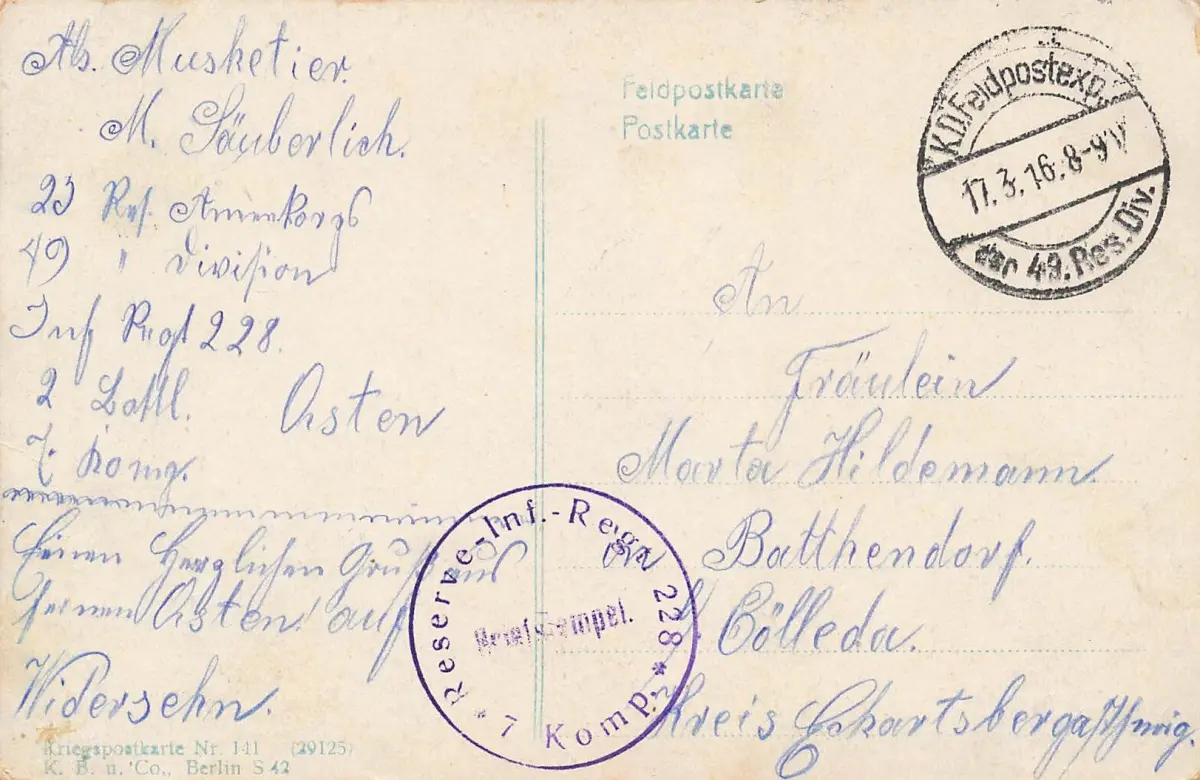 Abs. Musketier.
M. Säuberlich.
23 Res. Armeekorps
49 " Division
Inf Regt 228.
2 Batll. Osten
7. Komp.
Einen Herzlichen Gruß aus
fernen Osten auf
Widersehn.
Kriegspostkarte Nr. 141 (29125)
K. B. u. Co., Berlin S 42
Feldpostkarte
Postkarte
K.D.Feldpostexp.
17.3.16.8-9V
der 49.Res.Div.
An
Fräulein
Marta Hildemann.
in Batthendorf.
b/ Cölleda.
Kreis Eckartsberga/Thürig.
* Reserve-Inf.-Regt 228 *
Briefstempel.
7 Komp.